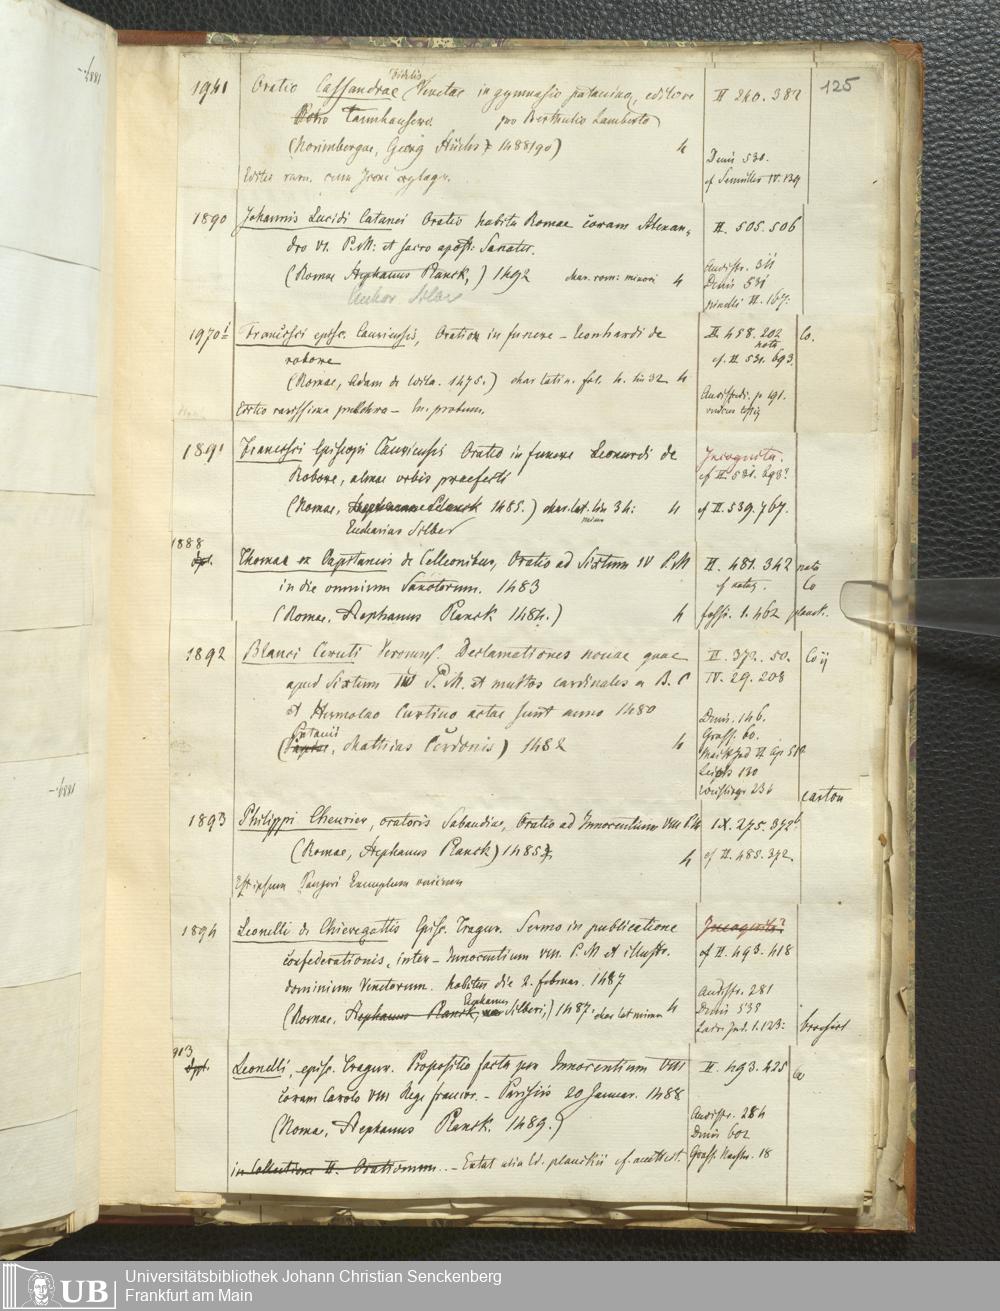 125
1941 Oratio Cassandrae Fidelis Venetae in gymnasio patavino, editore II 240. 382
Petro Tannhauser. pro Bertrutio Lamberto
(Norimbergae, Georg Stüchs 148890) 4
Denis 530.
Editio rara. cf Semiller IV. 139
1890 Johannis Lucidi Catanei Oratio habita Romae coram Alexan- II. 505. 506
dro VI. P.M: et sacro apost: Senatu.
Audifr. 311
(Romae Stephanus Planck,) 1492 char. rom: minori 4 Denis 531
Euchar Silber pinelli II. 167:
1970 i Francisci episc. Cauriensis, Oratio in funere - Leonhardi de II 458. 202 Co.
nota
robore cf. II 531. 693.
(Romae, Adam de Wila. 1475.) char latin. fol. 4. lin 32 4 Audifredi. p 191.
Editio rarissima pulchra - In. probum.
1891 Francisci Episcopi Cauriensis Oratio in funere Leonardi de Incognita.
Robore, almae urbis praefecti cf II. 531. 693?
(Romae, Stephanus Planck 1485.) char. lat. lin 34: 4 cf II. 539. 767.
Eucharius Silber minus
1888
dpl. Thomae ex Capitaneis de Celleonibus, Oratio ad Sixtum IV P.M II. 481. 342 nota
in die omnium Sanctorum. 1483 cf notas. Co
(Romae, Stephanus Planck 1484.) 4 fossi. 1. 462 planck.
1892 Blanci Ceruti Veronens. Declamationes novae quae II. 372. 50. Co ij
apud Sixtum IV P.M. et multos cardinales a B. C IV. 29. 208
et Hermolao Curtino actae sunt anno 1480
Denis. 146.
Patavii Grass. 60.
(, Matthias Cerdonis) 1482 4
Leich 130
carton
1893 Philippi Cheurier, oratoris Sabaudiae, Oratio ad Innocentium VIII P.M IX. 275. 372b
(Romae, Stephanus Planck) 1485 4 cf II. 485. 372.
Est ipsum Panzeri Exemplum unicum
1894 Leonelli de Chieregattis Episc. Tragur. Sermo in publicatione Incognita?
confederationis, inter - Innocentium VIII. P. M et illustr. cf II. 493. 418
dominium Venetorum. habitus die 2. februar. 1487 Audifr. 281
Eucharius Denis 538
(Romae, Stephanus Planck, Silberi,) 1487. char lat minor 4 Lair. Ind. 1. 123: brochirt
913
dpl. Leonelli, episc. Tragur. Propositio facta per Innocentium VIII II. 493. 425 Co
coram Carolo VIII Rege francor. - Parisiis 20 Januar. 1488
Audifr. 284
(Roma, Stephanus Planck. 1489.) Denis 602
in Collectione II. Orationum.. - Extat alia Ed. planckii cf. 18
1881.
1889.
UB Universitätsbibliothek Johann Christian Senckenberg
Frankfurt am Main